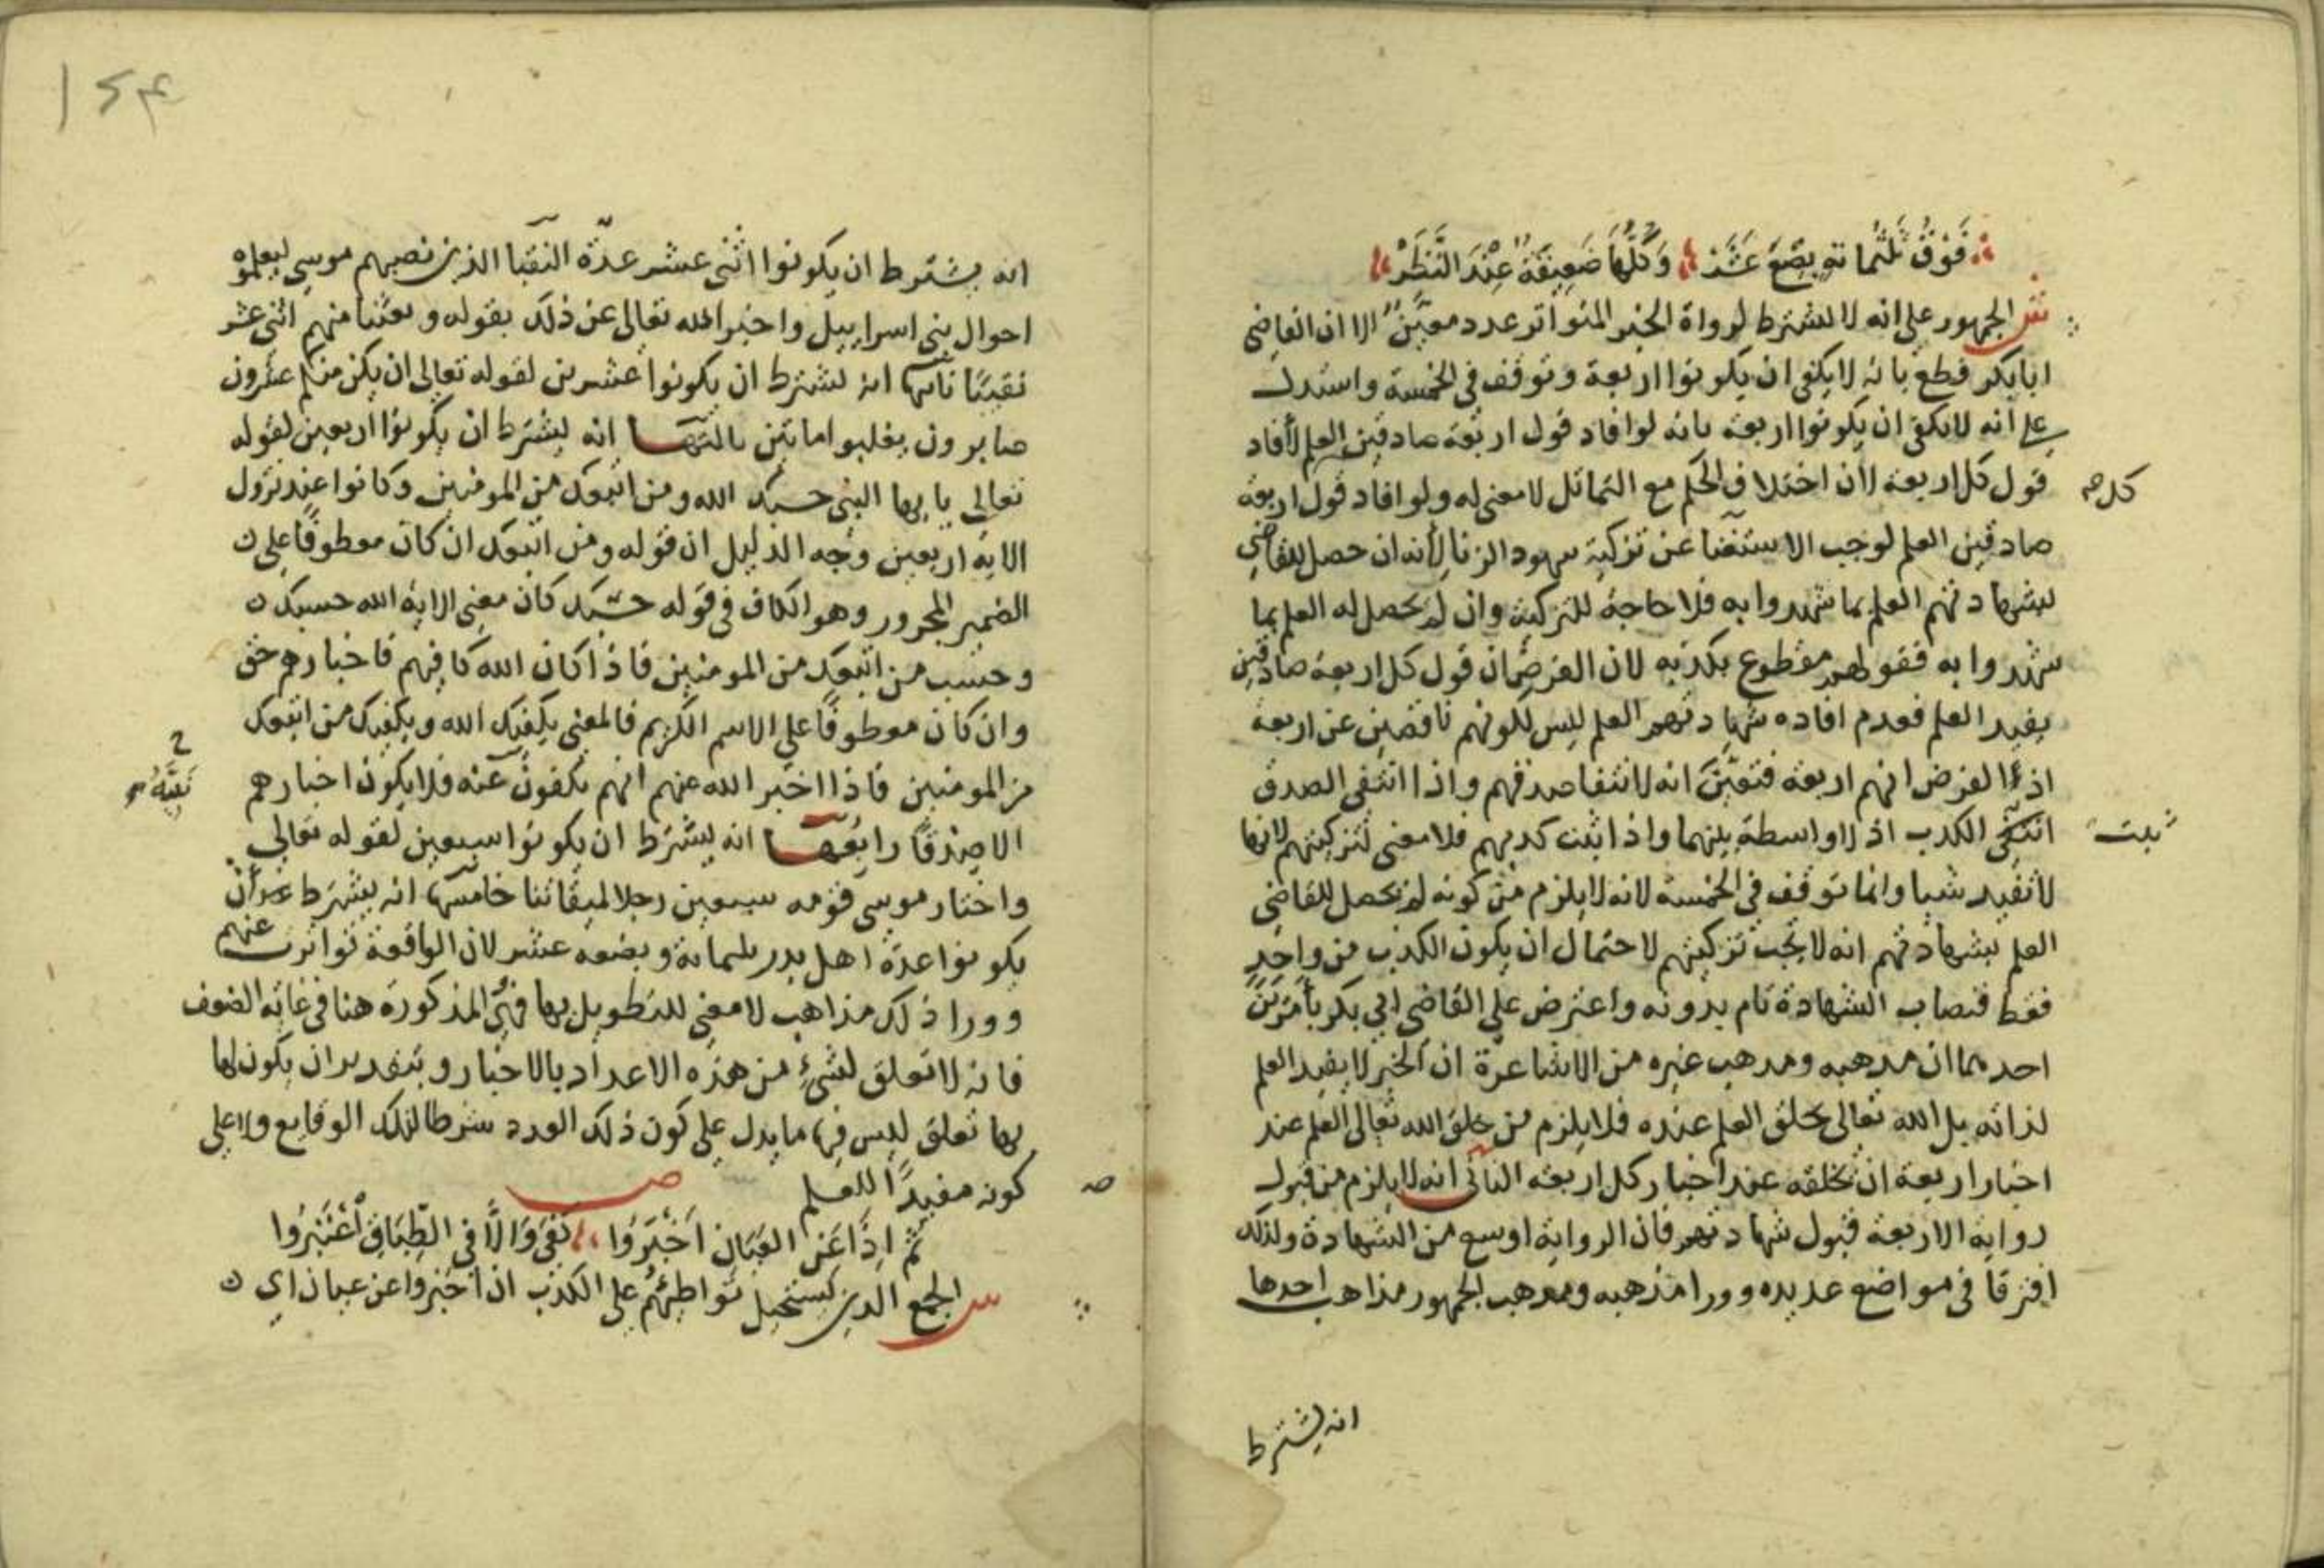 فَوْقُ ثَلثُمائةٍ بِضْعَ عَشَرْ وَكُلُّهَا ضَعِيفَةٌ عِنْدَ النَّظَرْ
ش الجمهور على انه لا يشترط لرواة الخبر المتواتر عدد معيّن الا ان القاضى
ابا بكر قطع بانه لا يكفى ان يكونوا اربعة وتوقف فى الخمسة واستدل
على انه لا يكفى ان يكونوا اربعة بانه لو افاد قول اربعة صادقين العلم لأفاد
قول كل اربعة لان اختلاف الحكم مع التماثل لا معنى له ولو افاد قول اربعة
كل صح
صادقين العلم لوجب الاستغنا عن تزكية شهود الزنا لأنه ان حصل للقاضي
بشهادتهم العلم بما شهدوا به فلا حاجة للتزكية وان لم يحصل له العلم بما
شهدوا به فقولهم مقطوع بكذبه لان الفرض ان قول كل اربعة صادقين
يفيد العلم فعدم افاده شهادتهم العلم ليس لكونهم ناقصين عن اربعة
اذ الفرض انهم اربعة فتعيّن انه لانتفا صدقهم واذا انتفى الصدق
انتفى الكذب اذ لا واسطة بينهما واذا ثبت كذبهم فلا معنى لتزكيتهم لانها
ثبت
لا تفيد شيا وانما توقف فى الخمسة لانه لا يلزم من كونه لم يحصل للقاضي
العلم بشهادتهم انه لا تجب تزكيتهم لاحتمال ان يكون الكذب من واحدٍ
فقط فنصاب الشهادة تام بدونه واعترض على القاضى ابي بكر بأمرين
احدهما ان مذهبه ومذهب غيره من الاشاعرة ان الخبر لا يفيد العلم
لذاته بل الله تعالى يخلق العلم عنده فلا يلزم من خلق الله تعالى العلم عند
اخبار اربعة ان يخلقه عند اخبار كل اربعة الثانى انه لا يلزم من قبول
رواية الاربعة قبول شهادتهم فان الرواية اوسع من الشهادة ولذلك
افترقا فى مواضع عديده وورا مذهبه ومذهب الجمهور مذاهب احدها
انه يشترط
١٥٤
انه يشترط ان يكونوا اثنى عشر عدّة النقبا الذين نصبهم موسى ليعلموه
احوال بنى اسراييل واخبر الله تعالى عن ذلك بقوله وبعثنا منهم اثنى عشر
نقيبًا ثانيها انه يشترط ان يكونوا عشرين لقوله تعالى ان يكن منكم عشرون
صابرون يغلبوا مايتين ثالثها انه يشترط ان يكونوا اربعين لقوله
تعالى يا يها النبى حسبك الله ومن اتبعك من المومنين وكانوا عند نزول
الاية اربعين وجه الدليل ان قوله ومن اتبعك ان كان معطوفًا على
الضمير المجرور وهو الكاف فى قوله حسبك كان معنى الاية الله حسبك
وحسب من اتبعك من المومنين فاذا كان الله كافيهم فاخبارهم حق
وان كان معطوفًا على الاسم الكريم فالمعنى يكفيك الله ويكفيك من اتبعك
من المومنين فاذا اخبر الله عنهم انهم يكفون عنه فلا يكون اخبارهم
نبيّه صح
الا صدقًا رابعها انه يشترط ان يكونوا سبعين لقوله تعالى
واختار موسى قومه سبعين رجلا لميقاتنا خامسها انه يشترط ان
يكونوا عدة اهل بدر ثلثمائة وبضعه عشر لان الواقعة تواترت عنهم
وورا ذلك مذاهب لا معنى للتطويل بها فهى المذكورة هنا فى غاية الضعف
فانه لا تعلق لشئ من هذه الاعداد بالاخبار وبتقدير ان يكون لها
بها تعلق ليس فيها ما يدل على كون ذلك العدد شرطا لتلك الوقايع ولا على
كونه مفيدًا للعلم ص
صـ
ثُمَّ اِذَا عَنِ العِيَانِ اَخْبَرُوا كَفَى وَالَّا فى الطِّبَاقِ اعْتَبِرُوا
ش الجمع الذين يستحيل تواطئهم على الكذب ان اخبروا عن عيان اى